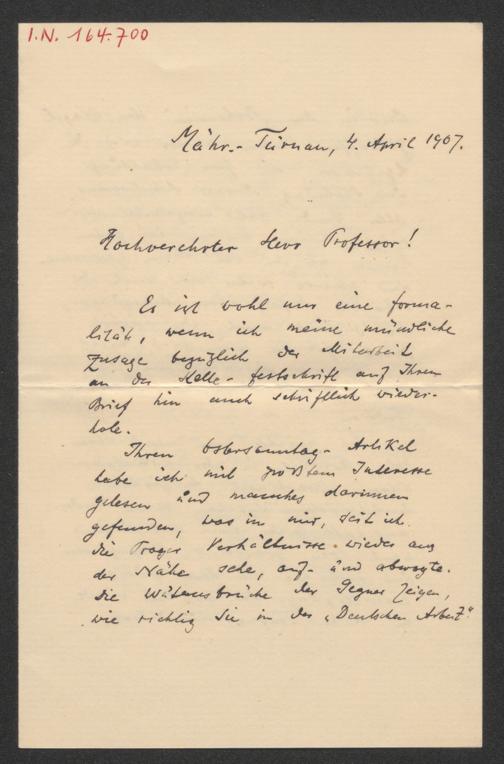 I.N. 164.700
Mähr.-Türnau, 4. April 1907.
Hochverehrter Herr Professor!
Es ist wohl nur eine Forma-
lität, wenn ich meine mündliche
Zusage bezüglich der Mitarbeit
an der Kelle-Festschrift auf Ihren
Brief hin auch schriftlich wieder-
hole.
Ihren Ostersonntag-Artikel
habe ich mit größtem Interesse
gelesen und manches darinnen
gefunden, was in mir, seit ich
die Prager Verhältnisse wieder aus
der Nähe sehe, auf- und abwogte.
Die Wutausbrüche der Gegner zeigen,
wie richtig Sie in der „Deutschen Arbeit"